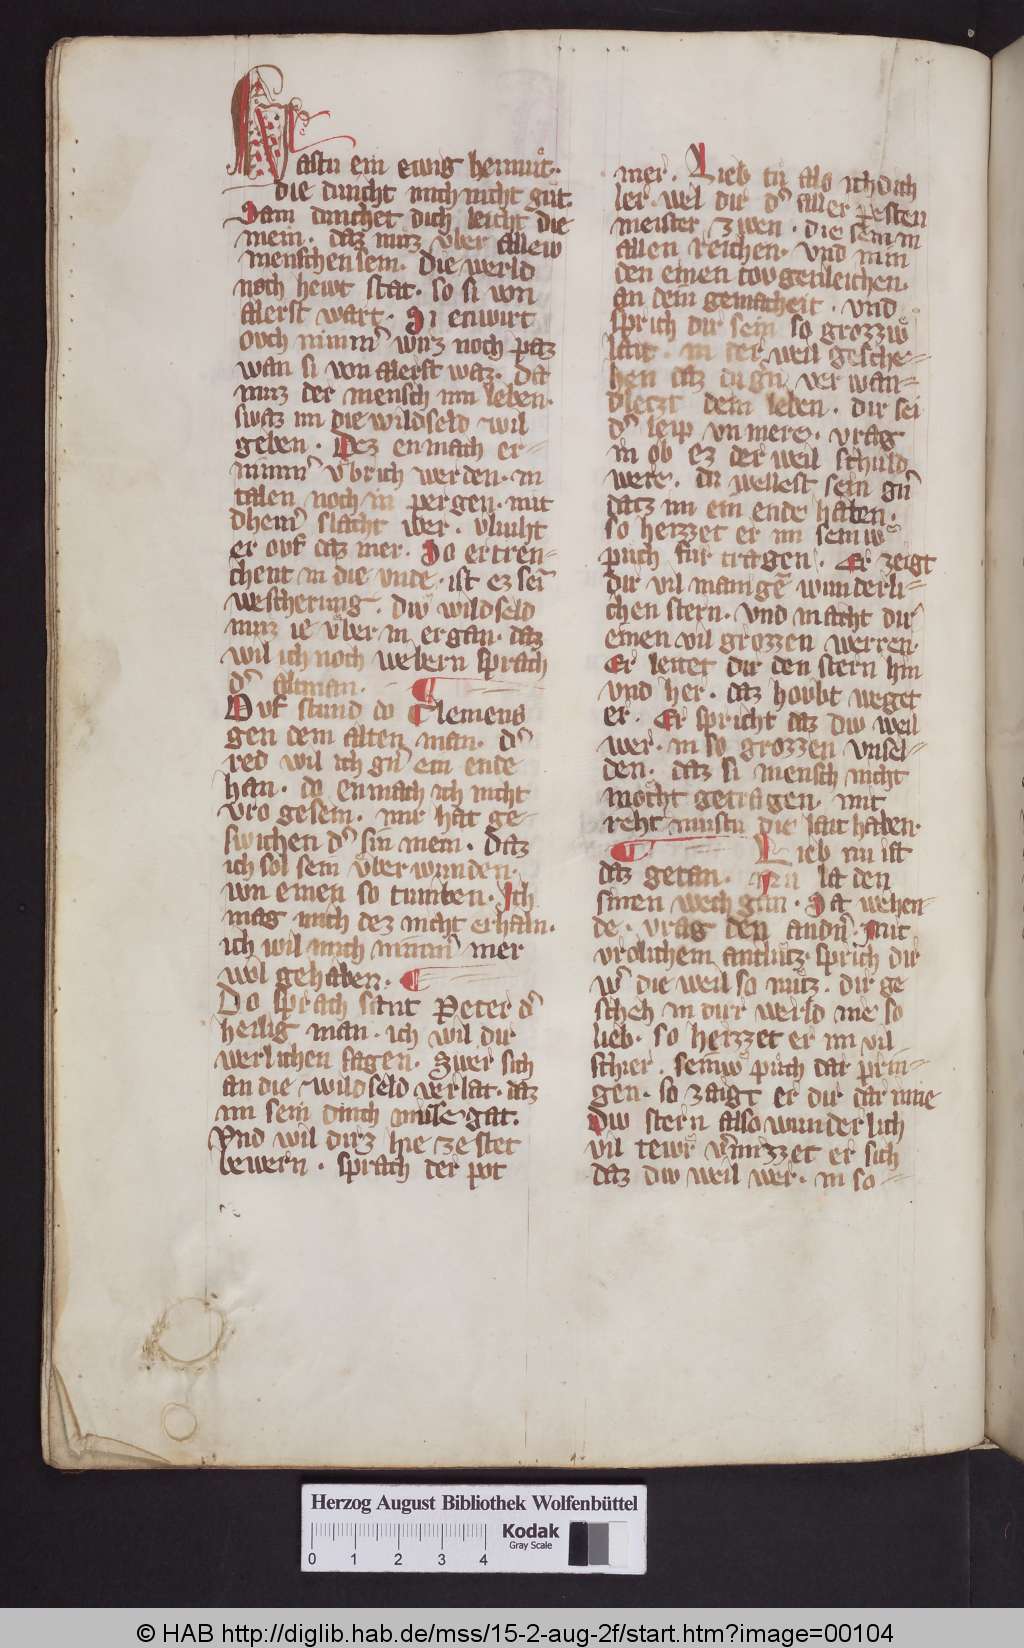 Hastu ein ewig hennůt.
die duncht mich nicht gůt.
Iam dunchet dich leicht die
mein. daz muz vber allew
menschen sein. Die werld
noch hewt stat. so si von
alerst wart. Si enwirt
ovch nimm͛ wirz noch paz
wan si von alerst waz. Da
muz der mensch inn leben.
swaz im die wildseld wil
geben. Dez enmach er
nimm͛ v̊brich werden. in
talen noch in pergen. mit
dhem͛ slacht wer. vliuht
er ovf daz mer. So ertren=
chent in die vnde. ist ez sein
wescherung. diw wildseld
muz ie v̊ber in ergan. daz
wil ich noch webern sprach
d͛ altman.
Ovf stund do Clemens
gen dem alten man. d͛
red wil ich gn̄ ein ende
han. do enmach ich nicht
vro gesein. mir hat ge=
swichen d͛ sin mein. Daz
ich sol sein v̊ber wunden.
von einen so tumben. Ich
mag mich dez nicht erhaln.
ich wil mich nimm͛ mer
wol gehaben.
Do sprach sant Peter d͛
heilig man. ich wil dir
werlichen sagen. Swer sich
an die wildseld verlat. daz
im sein dinch missegat.
Vnd wil dirz hie ze stet
bewern. sprach der pot
mer. Lieb tů als ich dich
ler. wel dir d͛ aller pesten
meister zwen. die sein in
allen reichen. vnd nim
den einen tovgenleichen.
an dein gemacheit. vnd
sprich dir sein so grozziw
lait. in der weil gesche=
hen daz du gn̄ ver wan=
dletzt dein leben. dir sei
d͛ leip vnmere. vrag
in ob ez der weil schuld
were. du wellest sein gn̄
datz im ein ende haben.
so heizzet er im seiniw
půch fůr tragen. Er zeigt
dir vil manigē wunderli=
chen stern. vnd macht dir
einen vil grozzen werren.
Er leitet dir den stern hin
vnd her. daz hovbt weget
er. Er spricht daz diw weil
wer. in so grozzen vnsel=
den. daz si mensch nicht
mocht getragen. mit
reht mustu die lait haben.
Lieb nu ist
daz getan. nu la den
sinen wech gan. Sa wehen=
de. vrag den andn̄. mit
vrolichem antlutz. sprich dir
w͛ die weil so nutz. dir ge
scheh in dirr werld nie so
lieb. so heizzet er im vil
schier. seiniw půch dar prin=
gen. so zaigt er dir dar inne
Diw stern also wunderlich
vil tewr v͛mizzet er sich
daz diw weil wer. in so=
Herzog August Bibliothek Wolfenbüttel
Kodak
Gray Scale
0 1 2 3 4
© HAB http://diglib.hab.de/mss/15-2-aug-2f/start.htm?image=00104